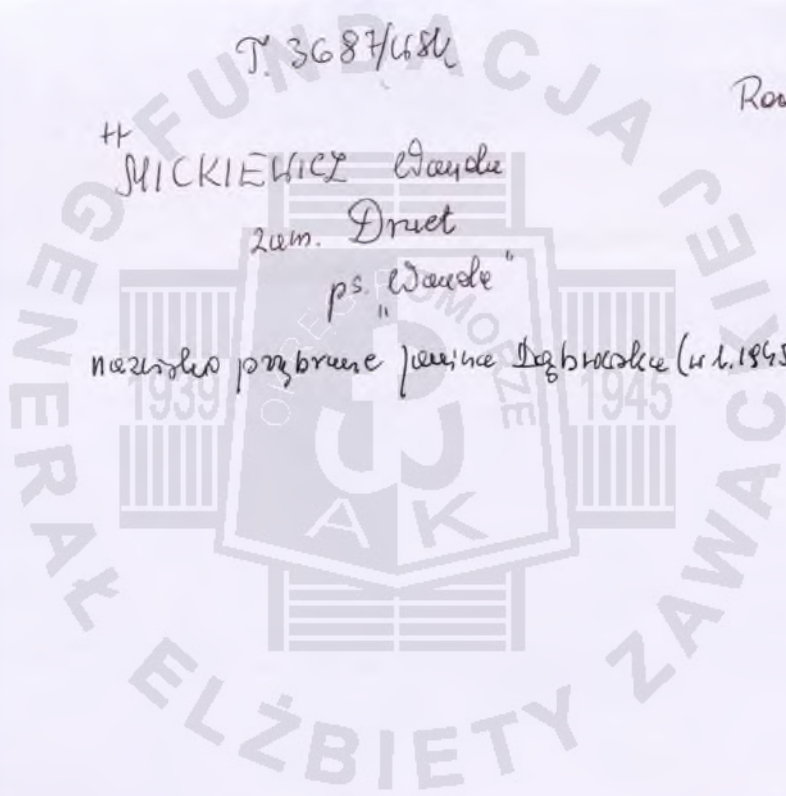 T. 3687/WSK
++
MICKIEWICZ Wanda
zam. Druet
ps. "Wanda"
nazwisko przybrane Janina Dąbrowska (w l. 1945
FUNDACJA GENERAŁ ELŻBIETY ZAWACKIEJ
OKRĘG POMORZE
1939 1945
AK